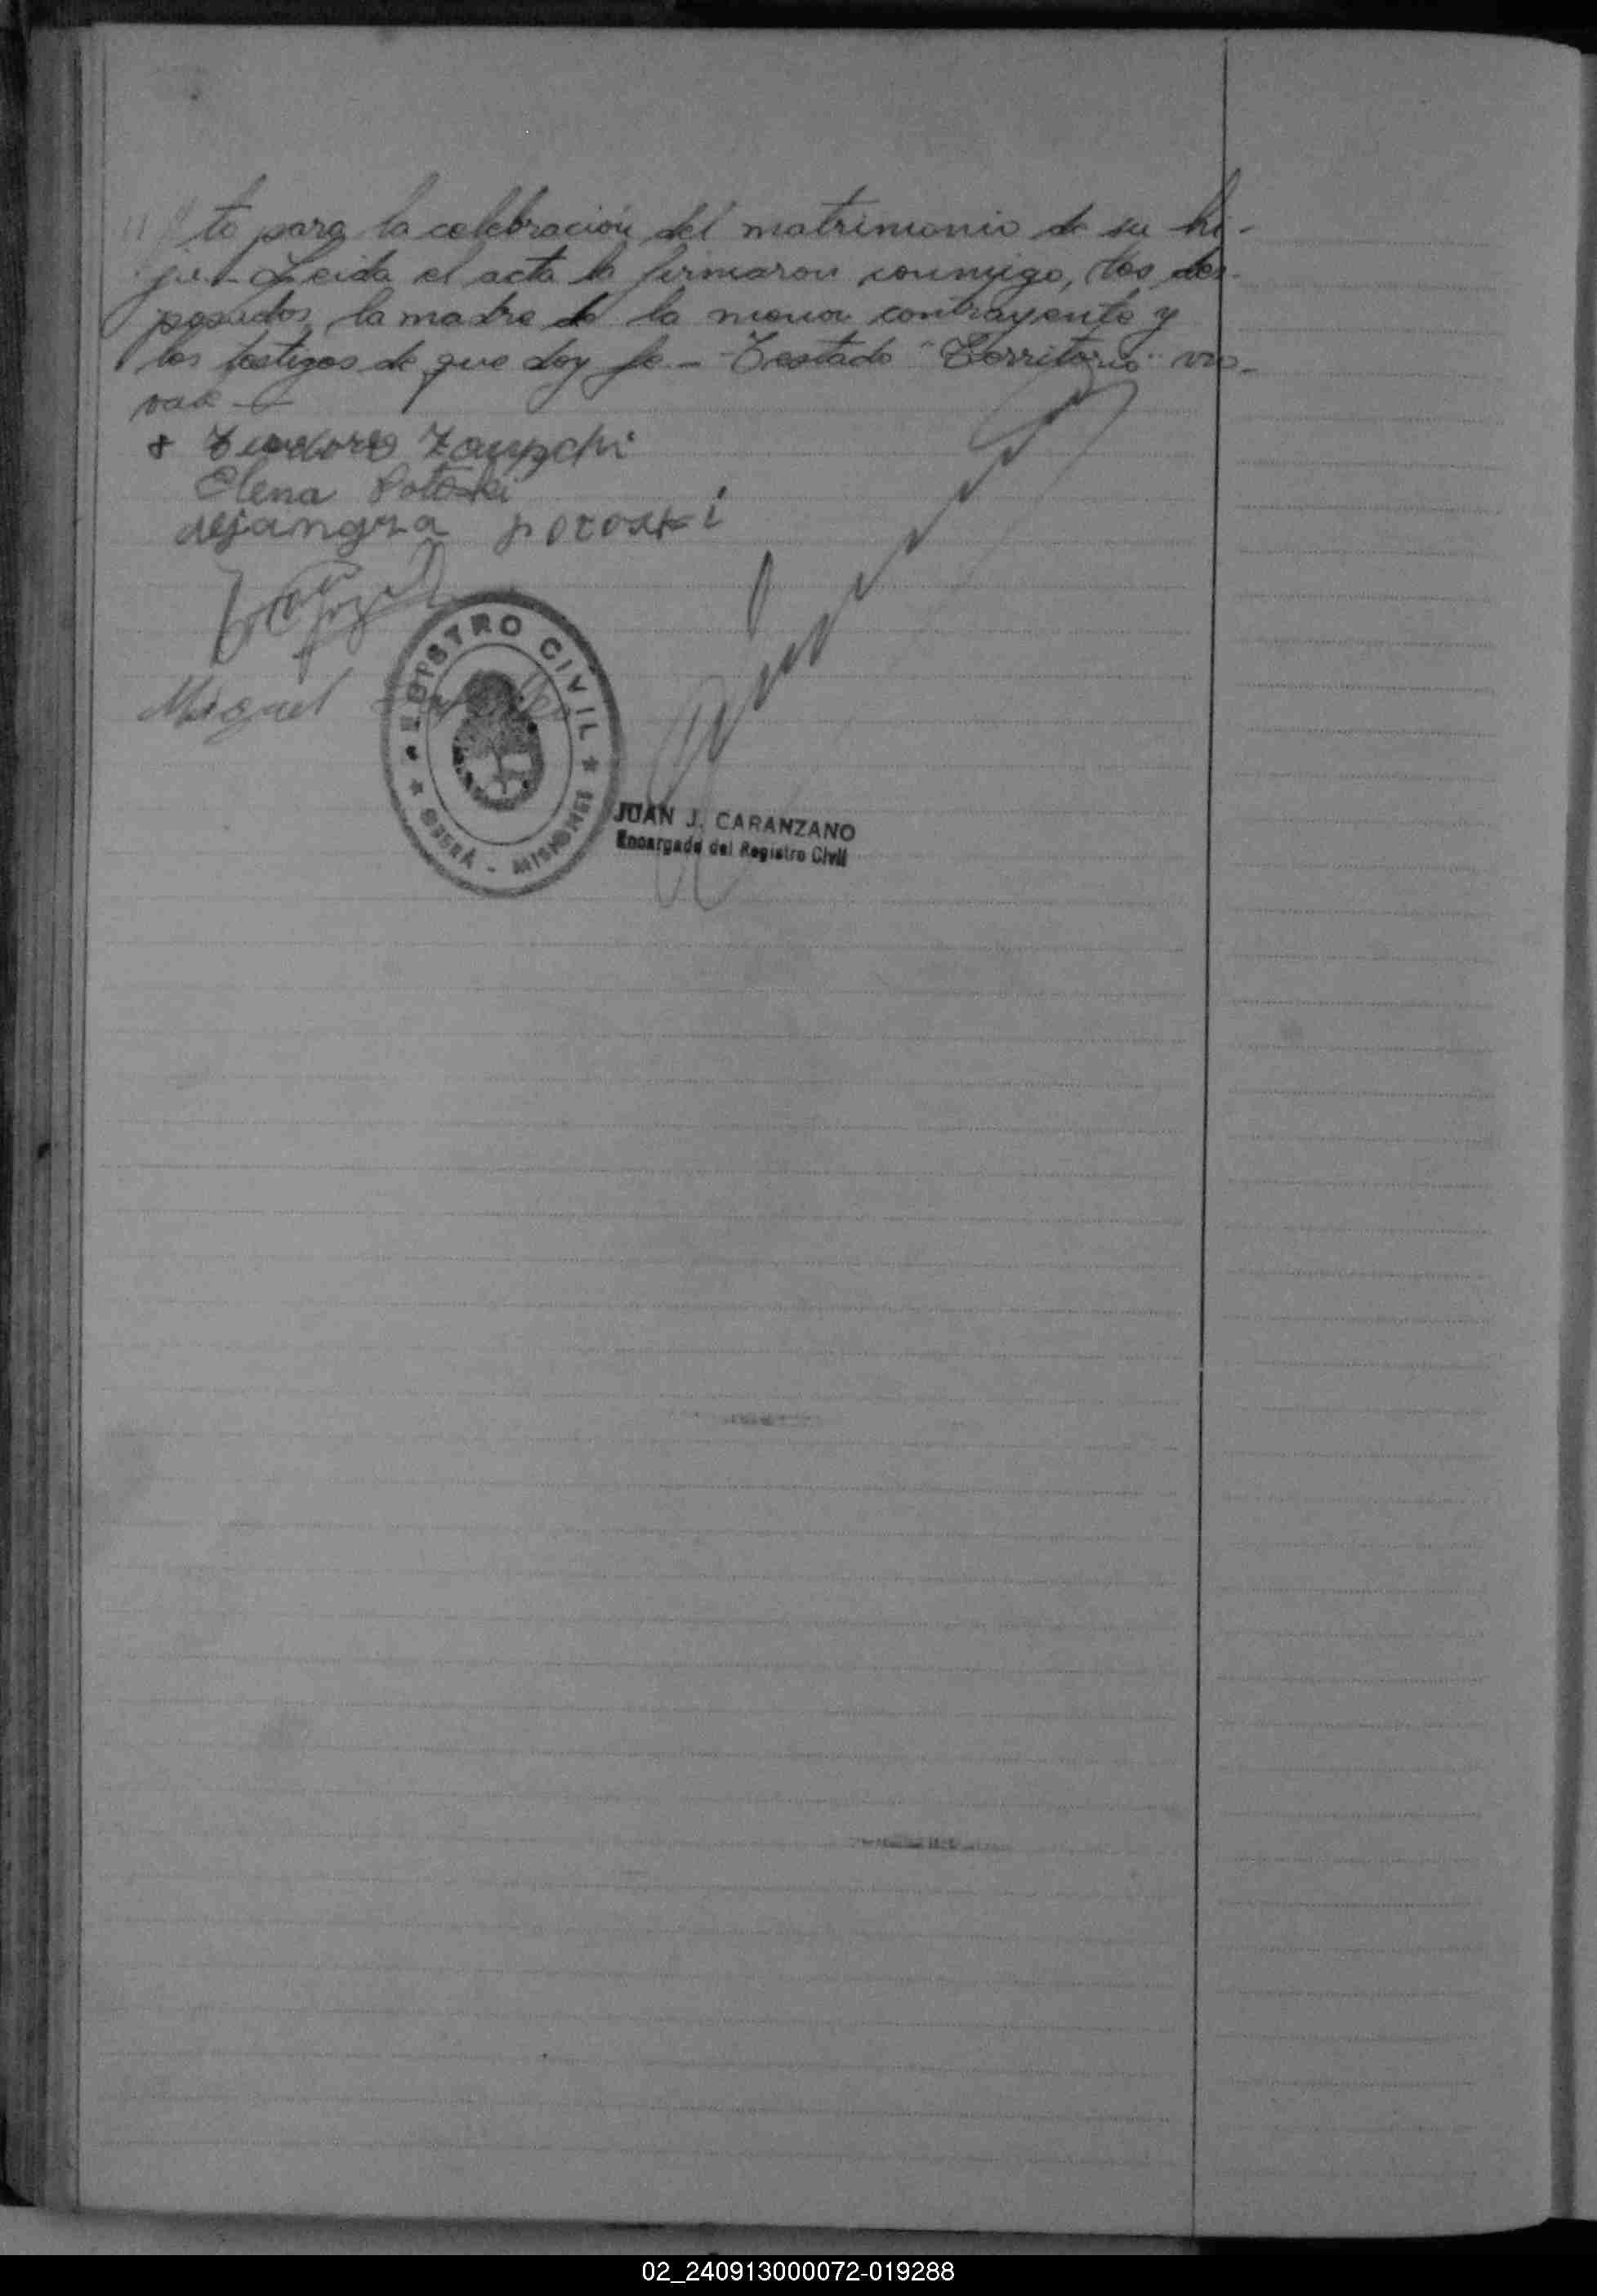 to para la celebración del matrimonio de su hi-
ja.- Leida el acta la firmaron conmigo, los des-
posados, la madre de la menor contrayente y
los testigos de que doy fe.- Testado "Territorio" no
vale
Teodoro
Elena Potoski
alejandra potoski
Miguel
REGISTRO CIVIL
OBERÁ - MISIONES
JUAN J. CARANZANO
Encargado del Registro Civil
02_240913000072-019288